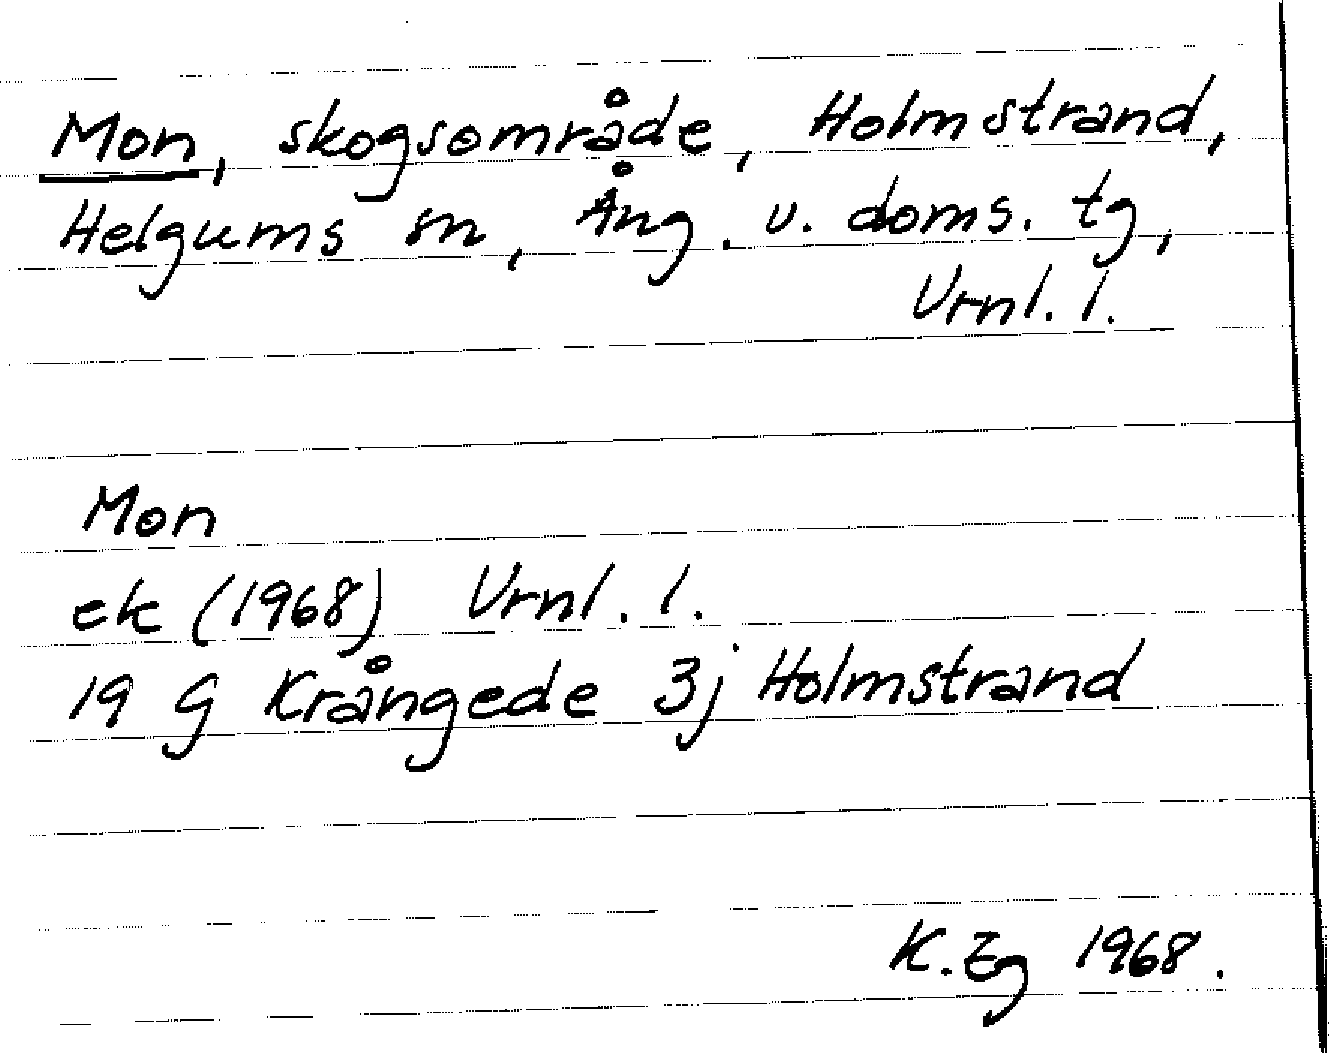 Mon, skogsområde, Holmstrand,
Helgums sn, Ång. v. doms. tg,
Vrnl. l.
Mon
ek (1968) Vrnl. l.
19 G Krångede 3j Holmstrand
K. Eg 1968.